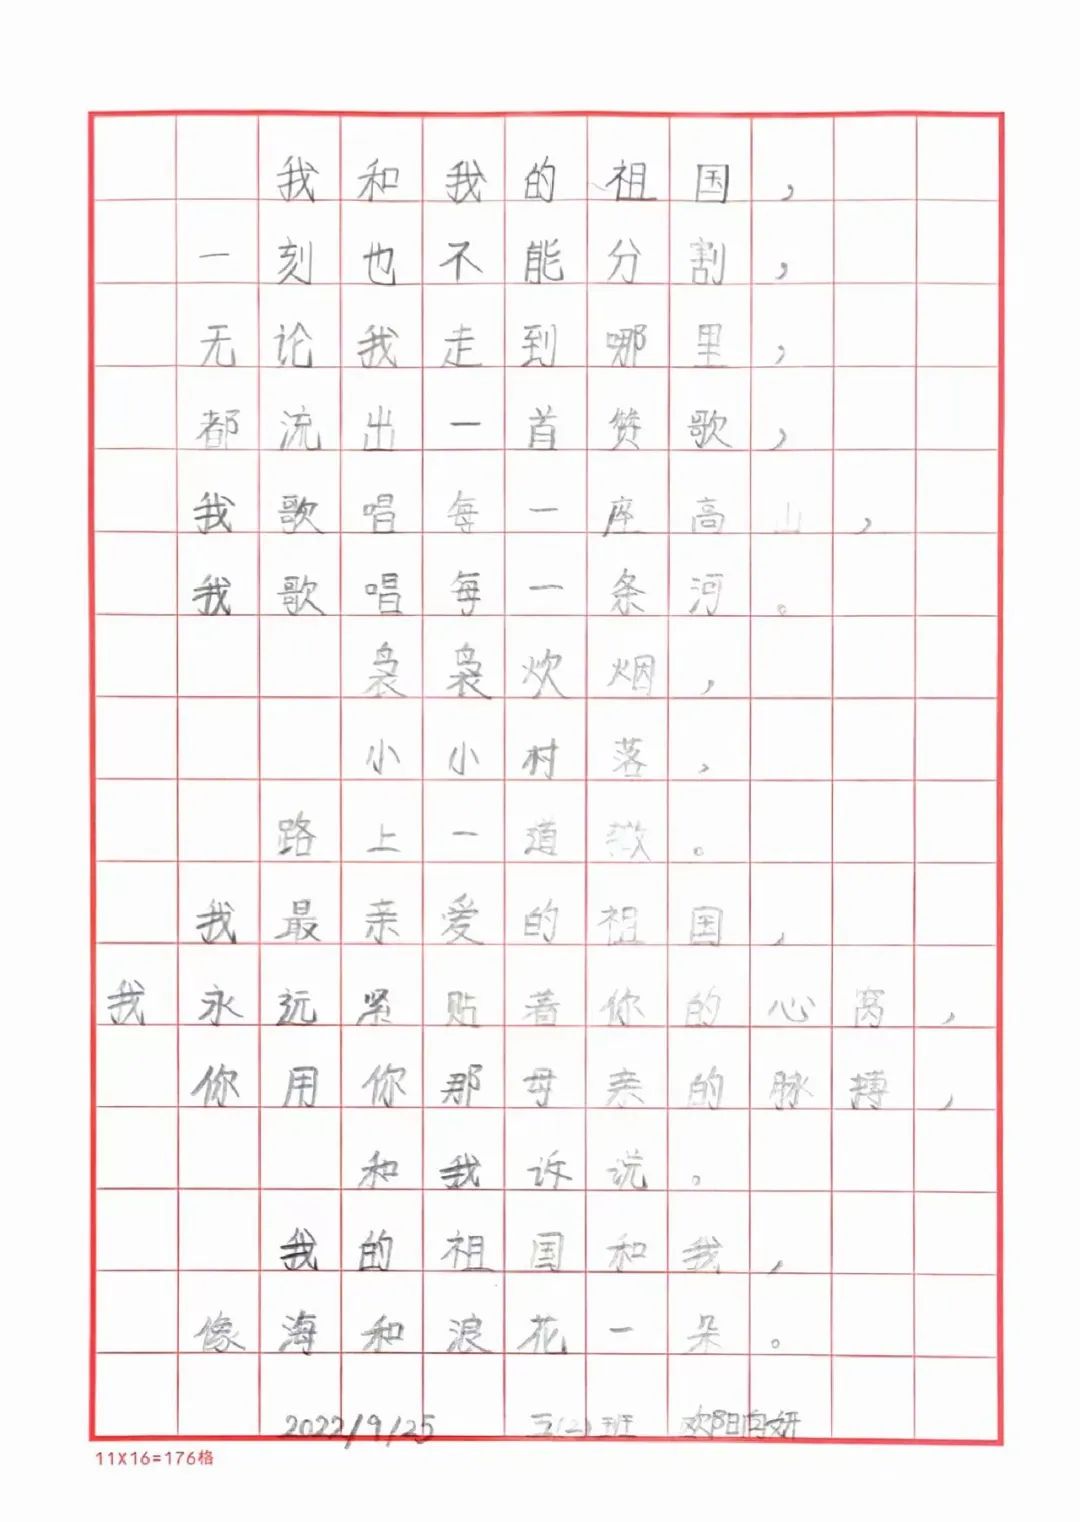 我和我的祖国，
一刻也不能分割，
无论我走到哪里，
都流出一首赞歌，
我歌唱每一座高山，
我歌唱每一条河。
袅袅炊烟，
小小村落，
路上一道辙。
我最亲爱的祖国，
我永远紧贴着你的心窝，
你用你那母亲的脉搏，
和我诉说。
我的祖国和我，
像海和浪花一朵。
2022/9/25 (二)班 欧阳向妍
11X16=176格